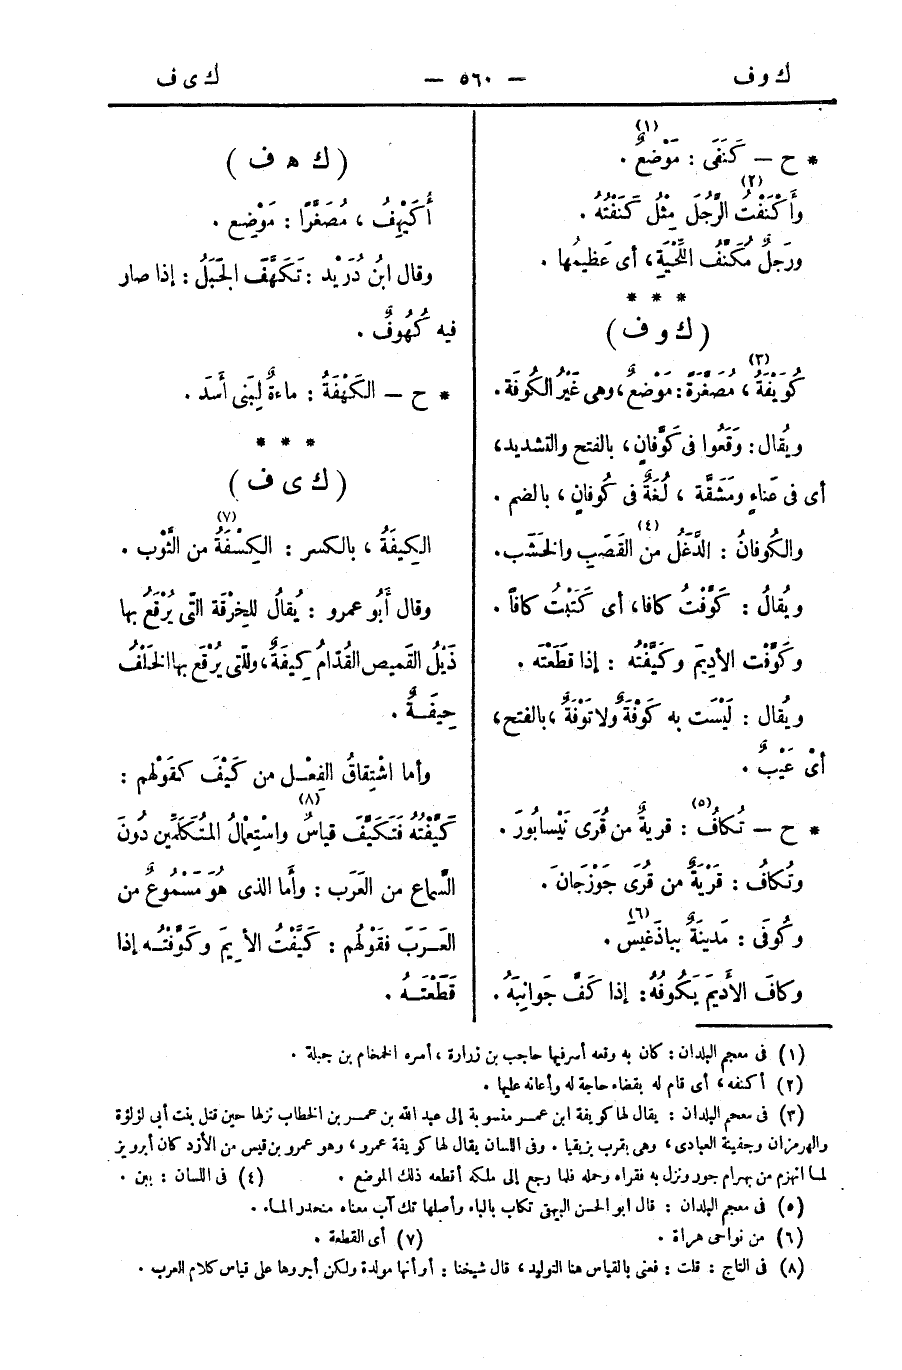 ك و ف — ٥٦٠ — ك ى ف
* ح — كَنَفَى : مَوْضِعٌ (١) .
وأَكْنَفْتُ (٢) الرَّجُلَ مِثْلُ كَنَفْتُه .
ورَجلٌ مُكَنَّفُ اللِّحْيَةِ ، أى عَظِيمُها .
* * *
( ك و ف )
كُوَيْفَةُ (٣) ، مُصَغَّرَةً : مَوْضِعٌ ، وهى غَيْرُ الكُوفَة .
ويُقال : وَقَعُوا فى كَوَّفانٍ ، بالفتح والتشديد ،
أى فى عَناءٍ ومَشَقَّة ، لُغَةٌ فى كُوفانٍ ، بالضم .
والكُوفانُ : الدَّغَلُ من (٤) القَصَبِ والخَشَب .
ويُقالُ : كَوَّفْتُ كافا ، أى كَتَبْتُ كافاً .
وكَوَّفْت الأدِيمَ وكَيَّفْتُه : إذا قَطَعْتَه .
ويُقال : لَيْسَت به كَوْفَةٌ ولا تَوْفَةٌ ، بالفتح ،
أىْ عَيْبٌ .
* ح — تُكافُ (٥) : قريةٌ من قُرَى نَيْسابُورَ .
وتُكافُ : قَرْيَةٌ من قُرَى جَوْزَجانَ .
وكُوفَى : مَدينةٌ (٦) بباذَغِيسَ .
وكافَ الأَدِيمَ يَكُوفُهُ : إذا كَفَّ جَوانِبَهُ .
( ك ه ف )
أُكَيْهِفُ ، مُصَغَّرًا : مَوْضِع .
وقال ابنُ دُرَيْد : تَكَهَّفَ الجَبَلُ : إذا صار
فيه كُهُوفٌ .
* ح — الكَهْفَةُ : ماءةٌ لِبَنى أَسَد .
* * *
( ك ى ف )
الكِيفَةُ ، بالكسر : الكِسْفَةُ (٧) من الثَّوْب .
وقال أَبُو عمرو : يُقالُ للخِرْقَة التى يُرْقَعُ بها
ذَيْلُ القَميص القُدّامُ كِيفَةٌ ، وللّتى يُرْقَع بها الخَلْفُ
حِيفَـةٌ .
وأما اشْتِقاقُ الفِعْـل من كَيْفَ كقَوْلهم :
كَيَّفْتُهُ فَتَكَيَّفَ قياسٌ (٨) واسْتِعْمالُ المُتَكَلِّمين دُونَ
السَّماع من العَرَب : وأَما الذى هُوَ مَسْمُوعٌ من
العَـرَبَ فقَوْلُهم : كَيَّفْتُ الأَدِيمَ وكَوَّفْتُـه إذا
قَطَعْتَـهُ .
(١) فى معجم البلدان : كان به وقعة أسر فيها حاجب بن زرارة ، أسره الخمخام بن جبلة .
(٢) أكنفه ، أى قام له بقضاء حاجة له وأعانه عليها .
(٣) فى معجم البلدان : يقال لها كويفة ابن عمر منسوبة إلى عبد الله بن عمر بن الخطاب نزلها حين قتل بنت أبى لؤلؤة
والهرمزان وجفينة العبادى ، وهى بقرب بزيقيا . وفى اللسان يقال لها كويفة عمرو ، وهو عمرو بن قيس من الأزد كان أبرويز
لما انهزم من بهرام جور ونزل به فقراه وحمله فلما رجع إلى ملكه أقطعه ذلك الموضع . (٤) فى اللسان : بين .
(٥) فى معجم البلدان : قال ابو الحسن البيهقى تكاب بالباء وأصلها تك آب معناه منحدر الماء .
(٦) من نواحى هراة . (٧) أى القطعة .
(٨) فى التاج : قلت : فعنى بالقياس هنا التوليد ، قال شيخنا : أو أنها مولدة ولكن أجروها على قياس كلام العرب .